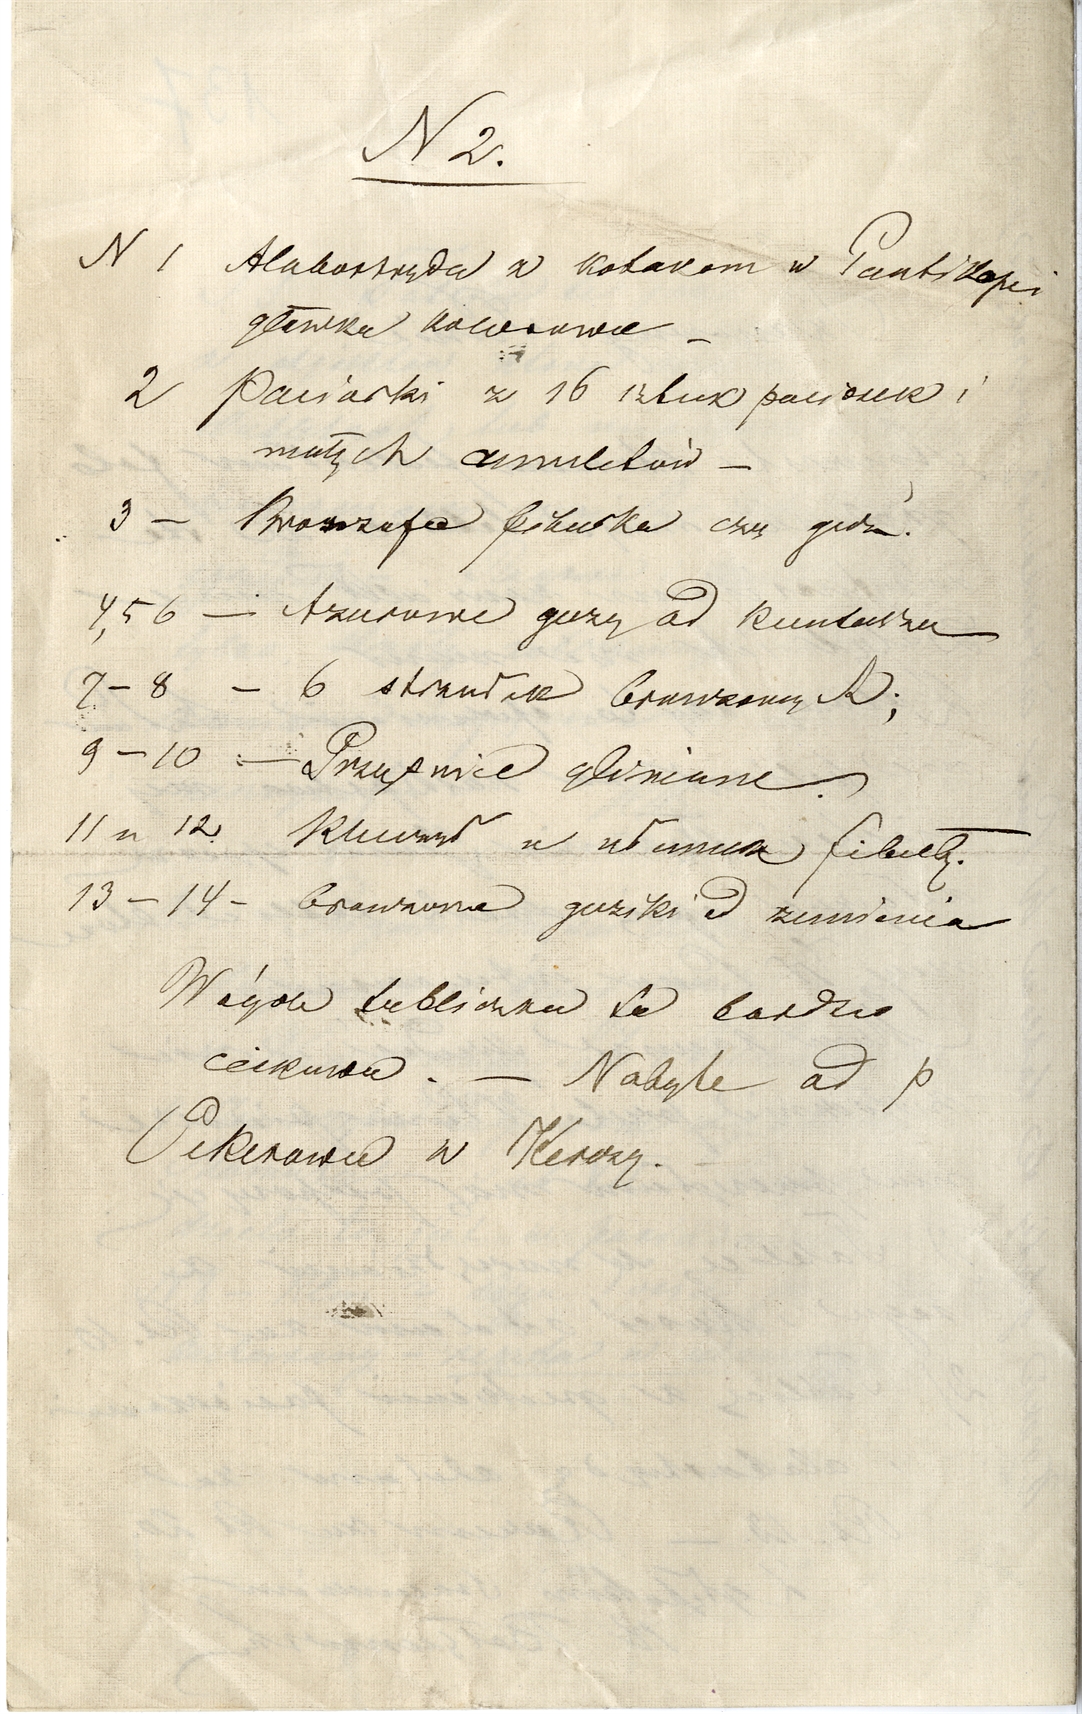 N 2.
N 1 Alabastryda z kotakom w Pantikapei
główka kolorowa —
2 Paciorki z 16 sztuk paciorek i
małych amuletów —
3 — Bronzafa fibulka czy
4,5 6 — Azurowe guzy od kuntusza
7 – 8 — 6 strzałek bronzowych;
9 – 10 — Przęśnice gliniane.
11 n 12. Kluczyk n ułamek fibuły.
13 – 14 – bronzowe guziki od
Wogóle tabliczka ta bardzo
ciekawa. — Nabyte od p
w Kerczy.